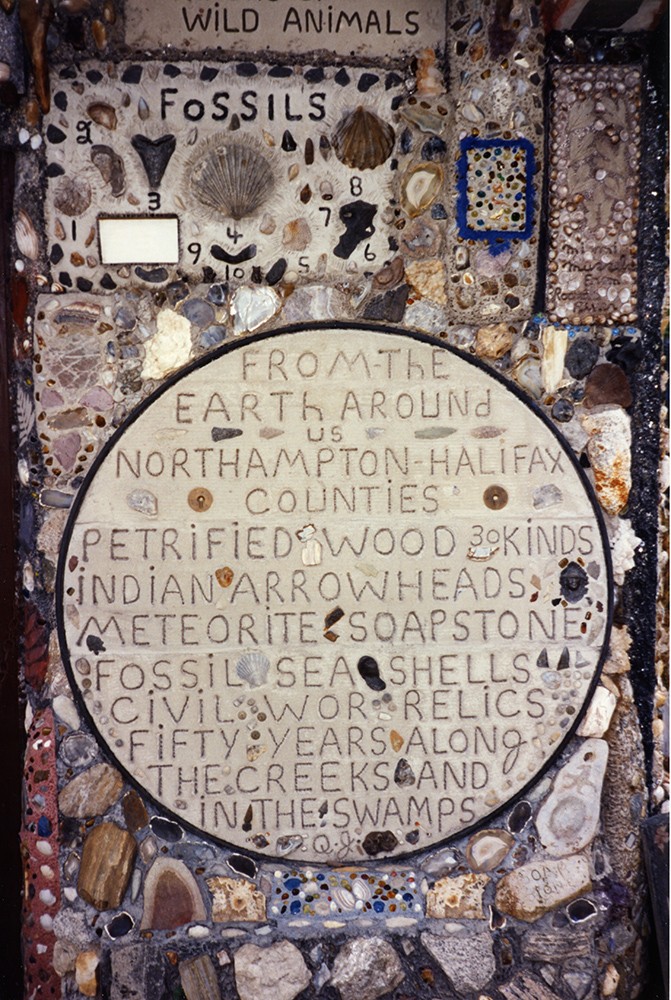 WILD ANIMALS
FOSSILS
2
3
8
1
7
9
4
5
6
10
FROM-ThE
EARTh AROUNd
US
NORTHAMPTON-HALIFAX
COUNTiES
PETRiFiED WOOD 30 KiNDS
iNDiAN ARROWHEADS
METEORiTE SOAPSTONE
FOSSiL SEA SHELLS
CiViL WOR RELiCS
FiFTY YEARS ALONg
THE CREEKS AND
iN THE SWAMPS
Q.J.